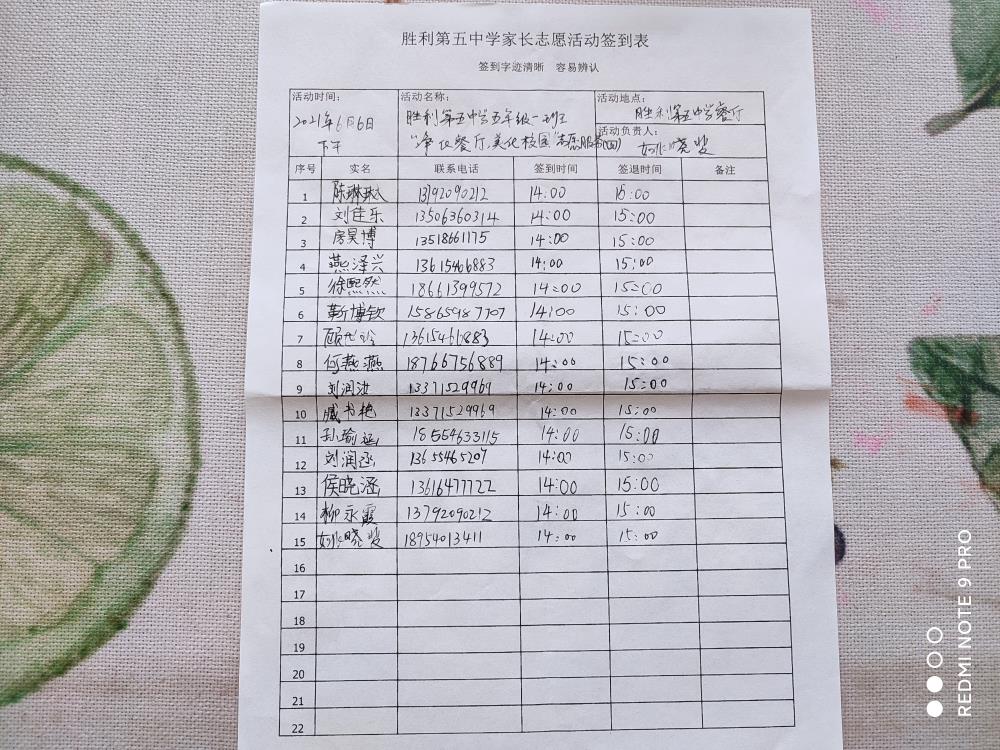 胜利第五中学家长志愿活动签到表
签到字迹清晰 容易辨认
活动时间: 活动名称: 活动地点:
2021年6月6日 胜利第五中学五年级一班 胜利第五中学餐厅
下午 "净化餐厅,美化校园"志愿服务(四) 活动负责人: 晓斐
序号 实名 联系电话 签到时间 签退时间 备注
1 陈琳 13792090212 14:00 15:00
2 刘佳乐 13506360314 14:00 15:00
3 房昊博 13518661175 14:00 15:00
4 燕泽兴 13615466883 14:00 15:00
5 徐熙然 18661399572 14:00 15:00
6 靳博钦 15865987707 14:00 15:00
7 顾 13615466883 14:00 15:00
8 何燕燕 18766756889 14:00 15:00
9 刘润汝 13371529969 14:00 15:00
10 臧书艳 13371529969 14:00 15:00
11 孙瑜涵 18554633115 14:00 15:00
12 刘润丞 13655465207 14:00 15:00
13 侯晓涵 13616477722 14:00 15:00
14 柳永霞 13792090212 14:00 15:00
15 晓斐 18954013411 14:00 15:00
16
17
18
19
20
21
22
REDMI NOTE 9 PRO